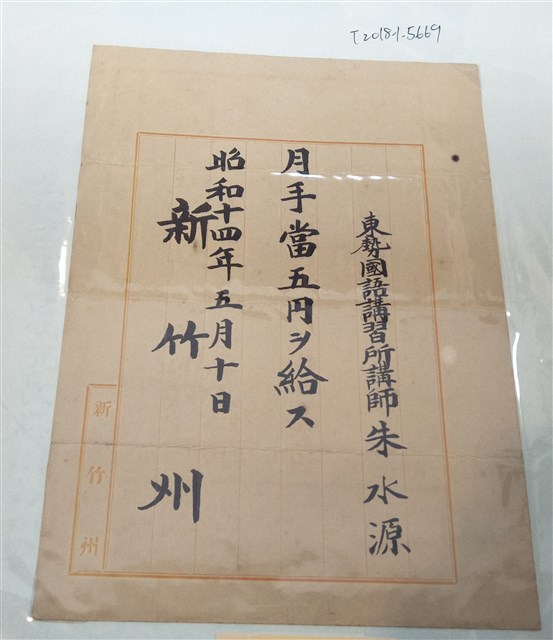 T2018-1-5669
東勢國語講習所講師朱水源
月手當五円ヲ給ス
昭和十四年五月十日
新竹州
新竹州